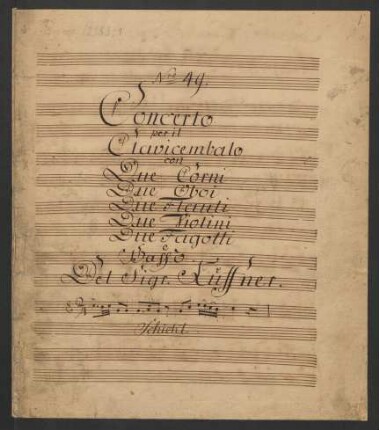 No. 49.
Concerto
per il
Clavicembalo
con
Due Corni
Due Oboi
Due Flauti
Due Violini
Due Fagotti
e
Basso
Del Sigr. Küffner.
Schicht